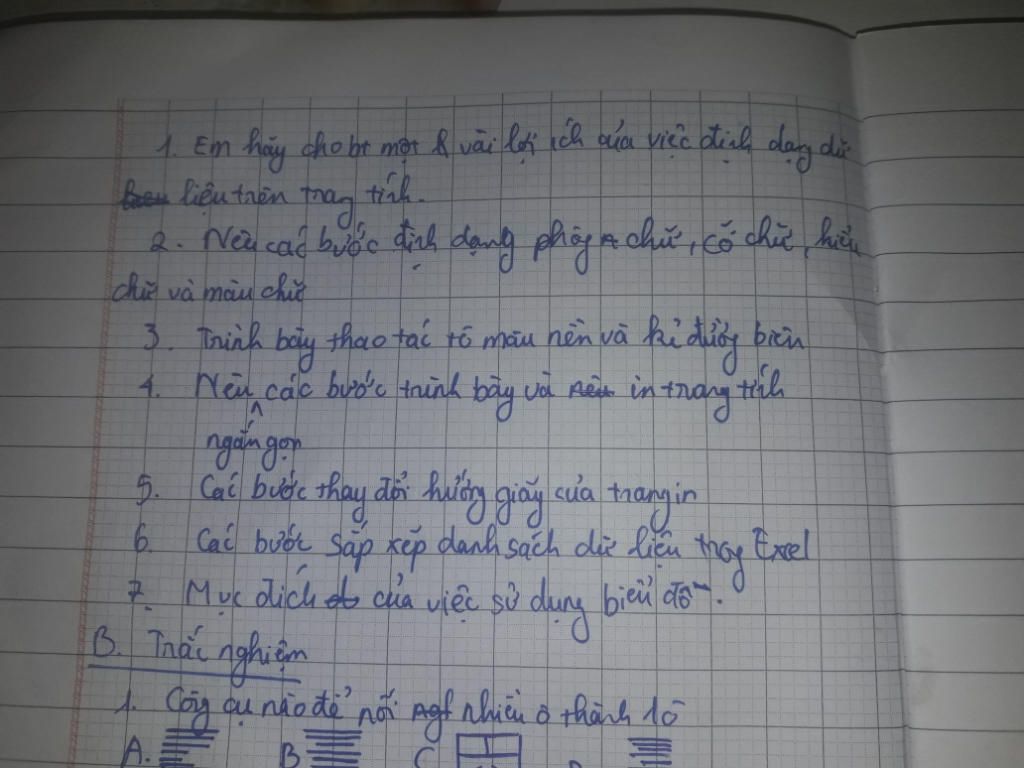 1. Em hãy cho bt một vài lợi ích của việc định dạng dữ
liệu trên trang tính.
2. Nêu các bước định dạng phông chữ, cỡ chữ, kiểu
chữ và màu chữ
3. Trình bày thao tác tô màu nền và kẻ đường biên
4. Nêu các bước trình bày và in trang tính
ngắn gọn
5. Các bước thay đổi hướng giấy của trang in
6. Các bước sắp xếp danh sách dữ liệu trog Excel
7. Mục đích của việc sử dụng biểu đồ.
B. Trắc nghiệm
1. Công cụ nào để nối nhiều ô thành 1 ô
A. B C